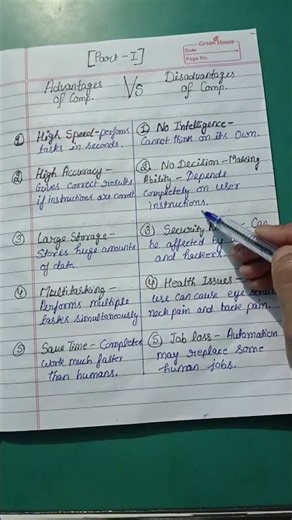 Green House
Date
Page No.
[Part - I]
Advantages of Comp.
Vs
Disadvantages of Comp.
① High Speed - perform
tasks in seconds.
② High Accuracy -
Gives correct results
if instructions are correct
③ Large Storage -
Stories huge amounts
of data.
④ Multitasking -
Performs multiple
tasks simultaneously
⑤ Save Time - Completes
work much faster
than humans.
① No Intelligence -
Cannot think on its Own.
② No Decision - Making
Ability - Depends
completely on user
instructions.
③ Security
be affected by
and hackers
④ Health Issues -
use can cause eye
neck pain and back pain.
⑤ Job loss - Automation
may replace some
human jobs.